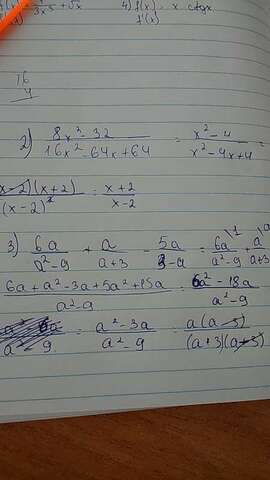 3x⁵ + √x   4) f(x) = x ctgx
f'(x)
16
4
2) 8x³-32 / 16x²-64x+64 = x²-4 / x²-4x+4 =
(x-2)(x+2) / (x-2)² = x+2 / x-2
3) 6a / a²-9 + a / a+3 - 5a / 3-a = 6a / a²-9 + a / a+3
6a+a²-3a+5a²+15a / a²-9 = 6a²-18a / a²-9
a²-9 = a²-3a / a²-9 = a(a-3) / (a+3)(a-3)